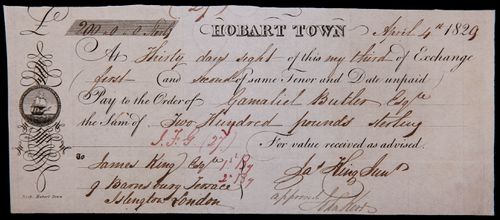 £ 200-0-0 Sterlg
HOBART TOWN April 4th 1829
At Thirty days sight of this my third of Exchange
(first and second of same Tenor and Date unpaid
Pay to the Order of Gamaliel Butler Esqre
the Sum of Two Hundred pounds Sterling
For value received as advised.
To
James King Esqre
9 Barnsbury Terrace
Islington London
Jas King Junr
approved
Hobart Town